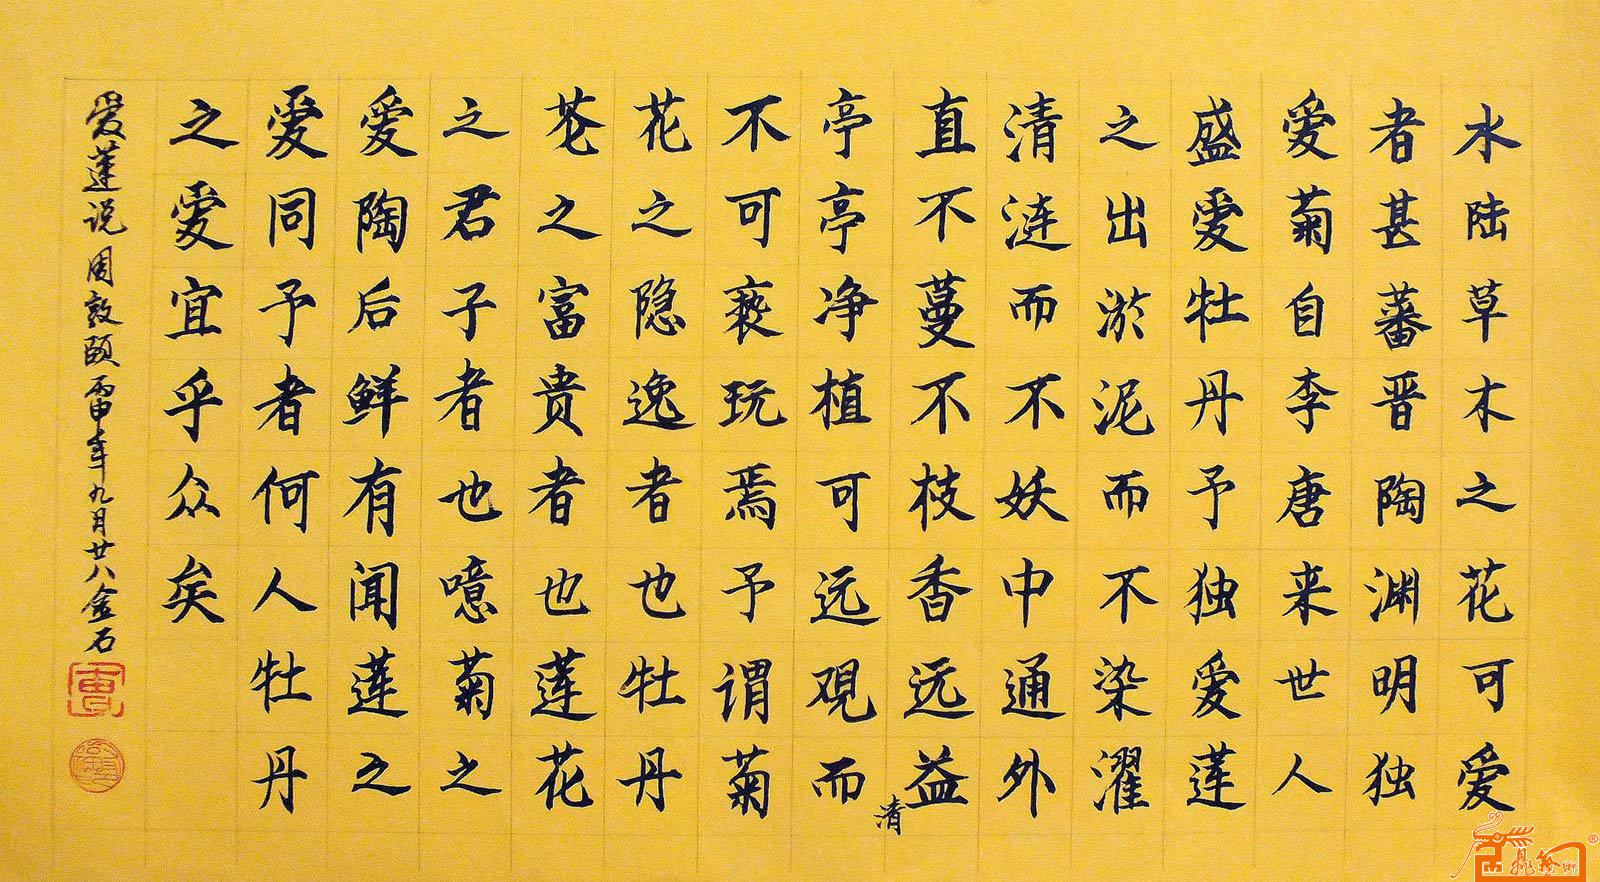 水陆草木之花可爱
者甚蕃晋陶渊明独
爱菊自李唐来世人
盛爱牡丹予独爱莲
之出淤泥而不染濯
清涟而不妖中通外
直不蔓不枝香远益
清
亭亭净植可远观而
不可亵玩焉予谓菊
花之隐逸者也牡丹
花之富贵者也莲花
之君子者也噫菊之
爱陶后鲜有闻莲之
爱同予者何人牡丹
之爱宜乎众矣
爱莲说周敦颐丙申年九月廿八金石